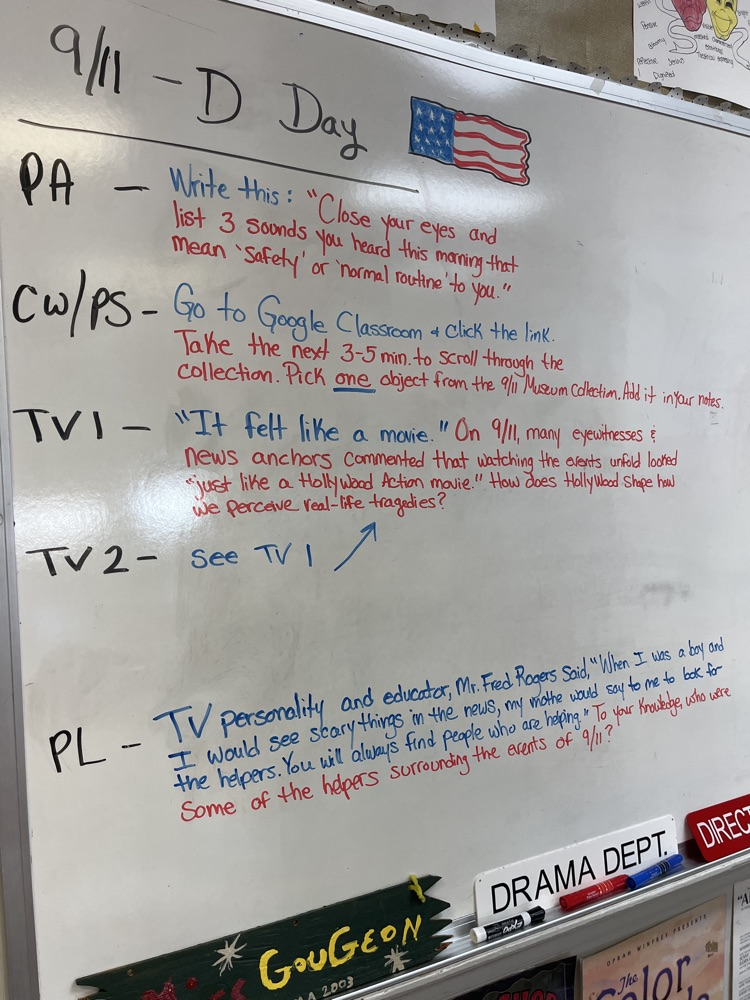 9/11 - D Day
PA - Write this: "Close your eyes and
list 3 sounds you heard this morning that
mean 'safety' or 'normal routine' to you."
CW/PS - Go to Google Classroom & click the link.
Take the next 3-5 min. to scroll through the
collection. Pick one object from the 9/11 Museum Collection. Add it in your notes.
TV1 - "It felt like a movie." On 9/11, many eyewitnesses &
news anchors commented that watching the events unfold looked
"just like a Hollywood Action movie." How does Hollywood shape how
we perceive real-life tragedies?
TV2 - see TV1
PL - TV personality and educator, Mr. Fred Rogers said, "When I was a boy and
I would see scary things in the news, my mothe would say to me to look for
the helpers. You will always find people who are helping." To your knowledge, who were
some of the helpers surrounding the events of 9/11?
DRAMA DEPT.
DIRECT
GOUGEON
2003
OPRAH WINFREY PRESENTS
The
Color